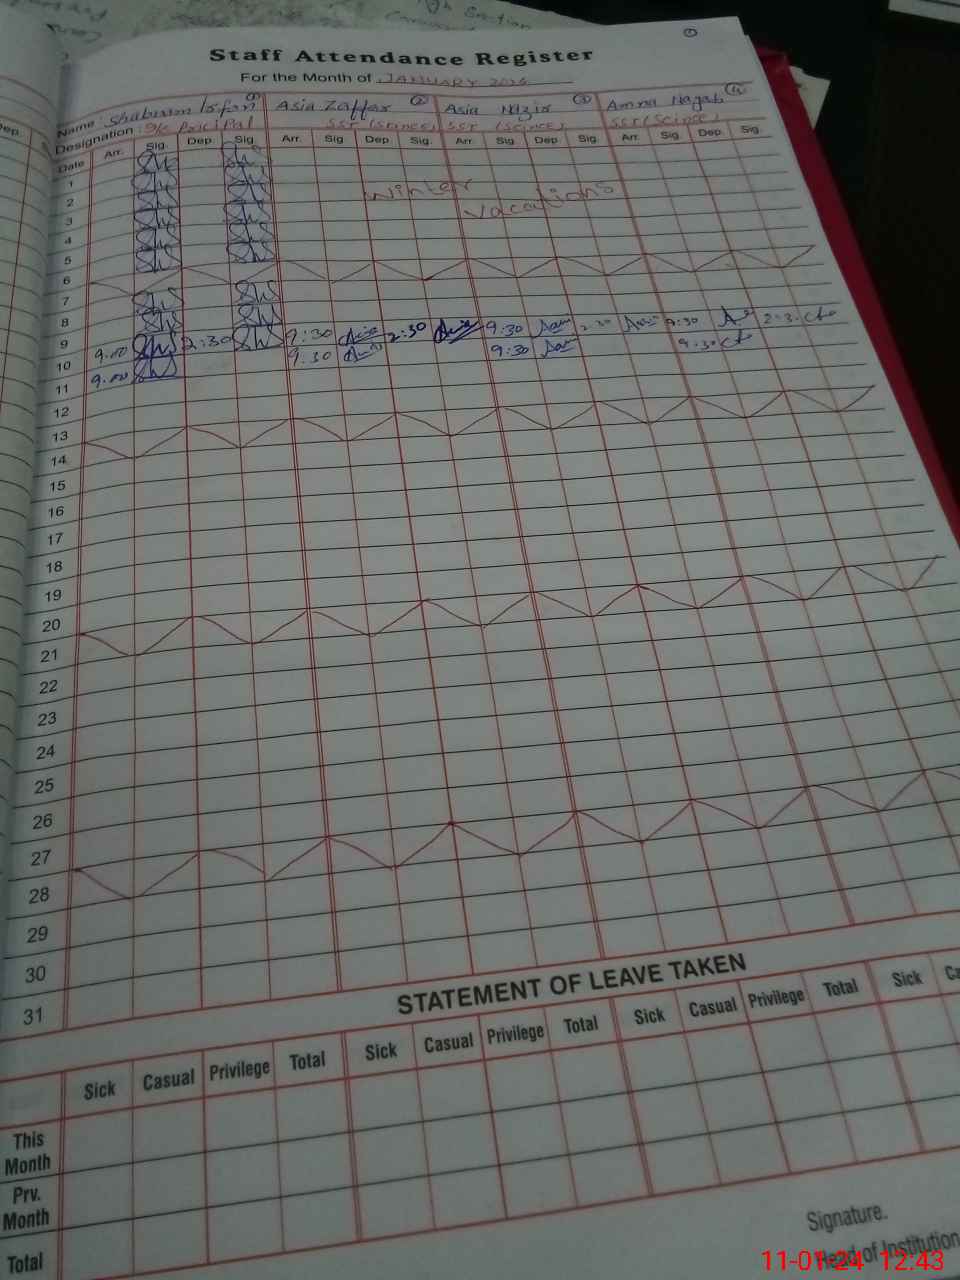 Staff Attendance Register
For the Month of JANUARY 2024
Name : Shabnam Irfan 1 Asia Zaffar 2 Asia Nazir 3 Amna Nagab 4
Designation : O/C Pricipal SST (Scince) SST (Scince) SST (Scince)
Date Arr. Sig. Dep. Sig. Arr. Sig. Dep. Sig. Arr. Sig. Dep. Sig. Arr. Sig. Dep. Sig.
1
2 Winter
3 Vacations
4
5
6
7
8
9
10 9:00 2:30 9:30 2:30 9:30 2:30 9:30 2:3
11 9:00 9:30 9:30 9:30
12
13
14
15
16
17
18
19
20
21
22
23
24
25
26
27
28
29
30
31
STATEMENT OF LEAVE TAKEN
Sick Casual Privilege Total Sick Casual Privilege Total Sick Casual Privilege Total Sick Ca
This Month
Prv. Month
Total
Signature.
Head of Institution
11-01-24 12:43